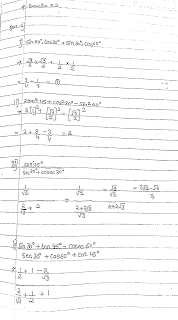 Exercise 8.2
Que-1
i) sin 60° cos 30° + sin 30° cos 60°
⇒ √3/2 × √3/2 + 1/2 × 1/2
= 3/4 + 1/4 = ①
ii) 2tan²45 + cos²30° - sin²60°
= 2[1]² + [√3/2]² - [√3/2]²
= 2 + 3/4 - 3/4 = 2
iii) cos 45°
sec 30° + cosec 30°
1/√2
2/√3 + 2
1/√2
2+2√3
√3
iv) sin 30° + tan 45° - cosec 60°
sec 30° + cos 60° + cot 45°
⇒ 1/2 + 1 - 2/√3
2/√3 + 1/2 + 1